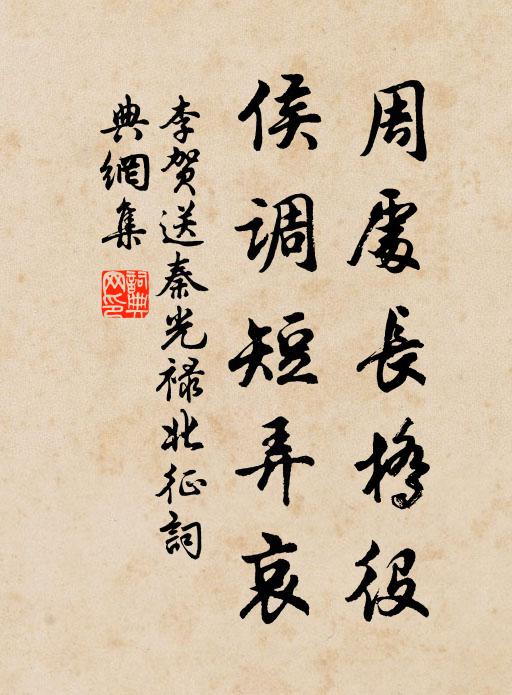 周處長橋役
侯調短弄哀
李賀送秦光祿北征詞
典網集
詞典網印